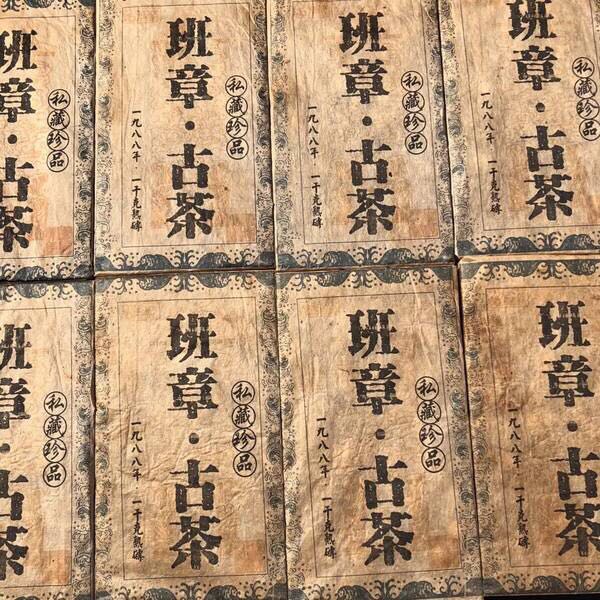 私藏珍品
班章·古茶
私藏珍品
班章·古茶
一九八八年 一千克熟磚
私藏珍品
班章·古茶
一九八八年 一千克熟磚
私藏珍品
班章·古茶
一九八八年 一千克熟磚
私藏珍品
班章·古茶
私藏珍品
班章·古茶
一九八八年 一千克熟磚
私藏珍品
班章·古茶
一九八八年 一千克熟磚
班章·古茶
一九八八年 一千克熟磚